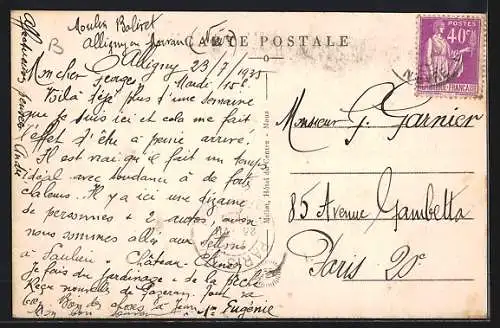 Moulin Bolivet
Alligny en Morvan
CARTE POSTALE
Alligny 23/7/1935
Mardi 15h.
Mon cher Georges
Voilà déjà plus d'une semaine
que je suis ici et cela me fait
l'effet d'être à peine arrivé.
Il est vrai qu'il fait un temps
idéal avec tendance à de fortes
chaleurs. Il y a ici une dizaine
de personnes + 2 autos, aussi
nous sommes allés aux Settons
à Saulieu, Château-Chinon
Je fais du jardinage & de la pêche
Reçu nouvelles de
Bien des choses à
Eugénie
Monsieur G. Garnier
85 Avenue Gambetta
Paris 20e
POSTES
40c